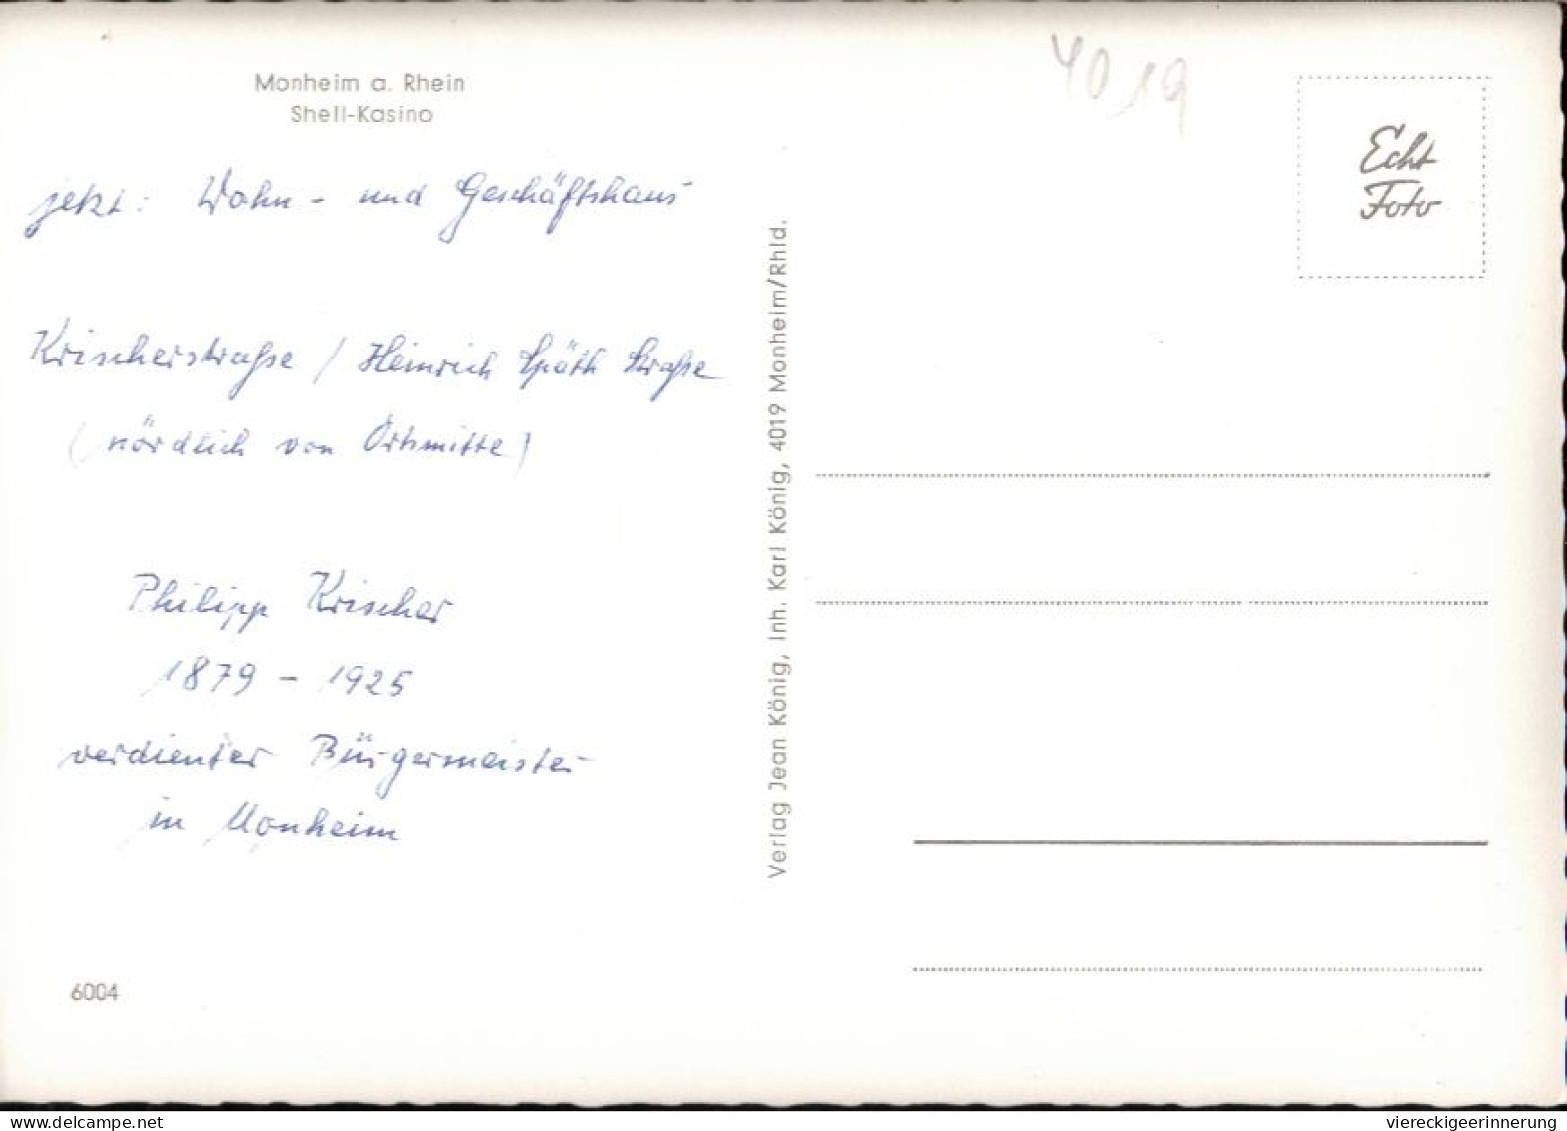 Monheim a. Rhein
Shell-Kasino
jetzt: Wohn- und Geschäftshaus
Krischerstraße / Heinrich Späth Straße
(nördlich von Ortsmitte)
Philipp Krischer
1879 - 1925
verdienter Bürgermeister
in Monheim
6004
Verlag Jean König, Inh. Karl König, 4019 Monheim/Rhld.
4019
Echt
Foto
www.delcampe.net
viereckigeerinnerung